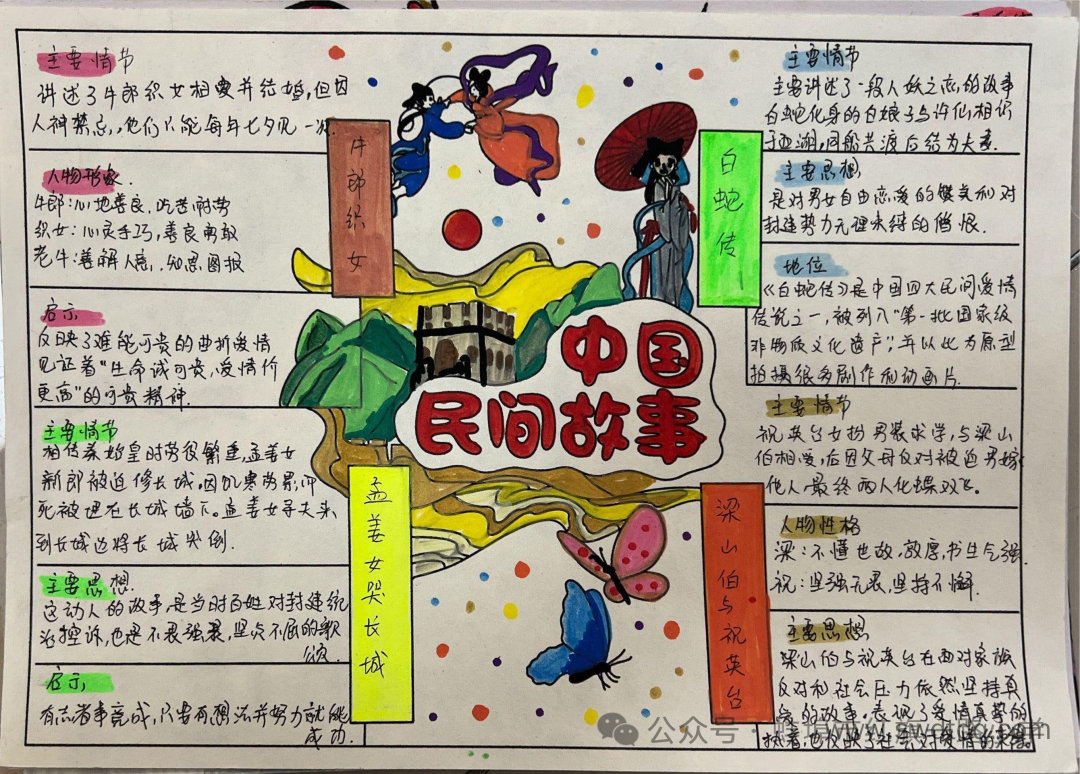 中国
民间故事
牛郎织女
主要情节
讲述了牛郎织女相爱并结婚,但因
人神禁忌,他们只能每年七夕见一次
人物形象
牛郎:心地善良,吃苦耐劳
织女:心灵手巧,善良勇敢
老牛:善解人意,知恩图报
启示
反映了难能可贵的曲折爱情
见证着“生命诚可贵,爱情价
更高”的可贵精神.
孟姜女哭长城
主要情节
相传秦始皇时劳役繁重,孟姜女
新郎被迫修长城。因饥寒劳累,
死被埋在长城墙下。孟姜女寻夫来
到长城边将长城哭倒.
主要思想.
这动人的故事,是当时百姓对封建统
治控诉,也是不畏强暴,坚贞不屈的歌
颂.
启示
有志者事竟成,只要有想法并努力就能
成功.
白蛇传
主要情节
主要讲述了一段人妖之恋的故事
白蛇化身的白娘子与许仙相识
于西湖,同船共渡后结为夫妻.
主要思想
是对男女自由恋爱的赞美和对
封建势力无理束缚的憎恨.
地位
《白蛇传》是中国四大民间爱情
传说之一,被列入“第一批国家级
非物质文化遗产”,并以此为原型
拍摄很多剧作和动画片.
梁山伯与祝英台
主要情节
祝英台女扮男装求学,与梁山
伯相爱,后因父母反对被迫另嫁
他人,最终两人化蝶双飞。
人物性格
梁:不懂世故,敦厚,书生气强
祝:坚强无畏,坚持不懈.
主要思想
梁山伯与祝英台在面对家族
反对和社会压力依然坚持真
爱的故事。表现了爱情真挚的
执着,也反映了社会对爱情的束缚。
公众号